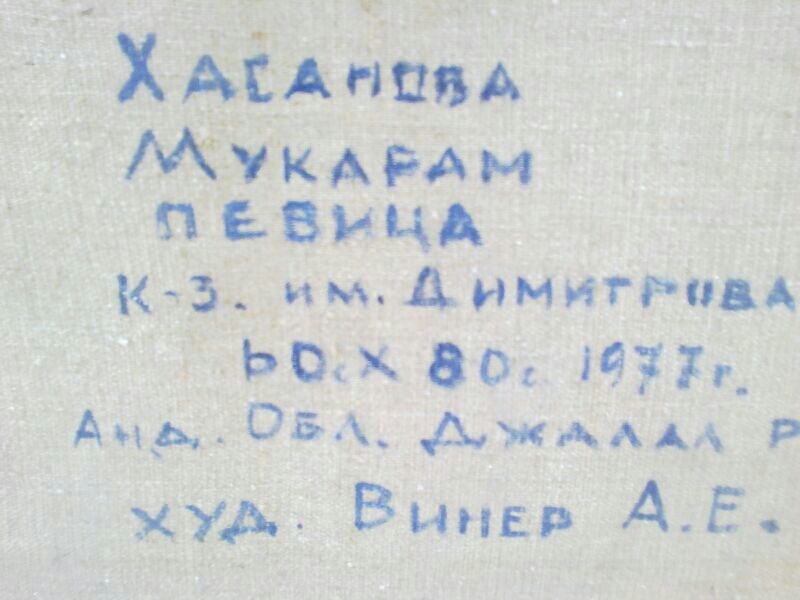 ХАСАНОВА
МУКАРАМ
ПЕВИЦА
К-З. ИМ. ДИМИТРОВА
60с Х 80с. 1977г.
АНД. ОБЛ. ДЖАЛАЛ Р
ХУД. ВИНЕР А.Е.